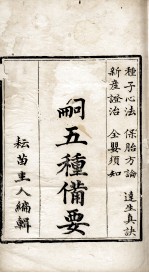 種子心法 保胎方論 達生真訣
新產證治 全嬰須知
嗣五種備要
耘苗主人編輯